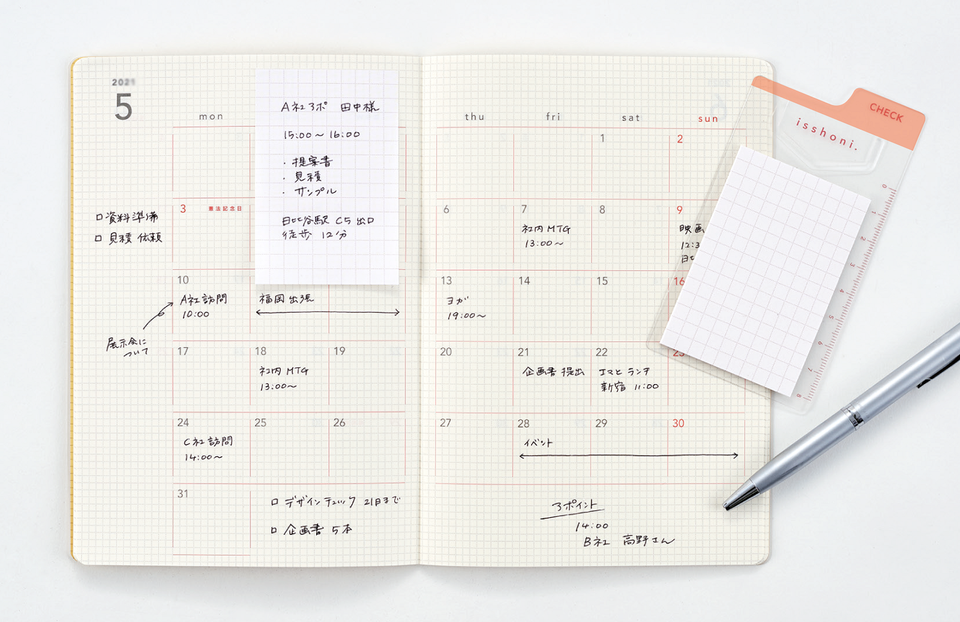 2021
5
mon
thu fri sat sun
A社アポ 田中様
15:00〜16:00
・提案書
・見積
・サンプル
日比谷駅 C5出口
徒歩 12分
1 2
3 憲法記念日
6 7 8 9
社内MTG
13:00〜
映画
□資料準備
□見積 依頼
10
A社訪問
10:00
福岡出張
展示会に
ついて
13 14 15 16
ヨガ
19:00〜
17 18 19
社内MTG
13:00〜
20 21 22 23
企画書 提出
エマとランチ
新宿 11:00
24 25 26
C社訪問
14:00〜
27 28 29 30
イベント
31
□ デザインチェック 21日まで
□ 企画書 5本
アポイント
14:00
B社 高野さん
CHECK
isshoni.